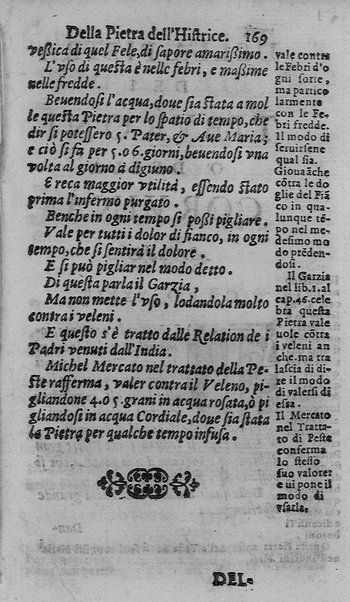 Della Pietra dell'Histrice. 169
vessica di quel Fele, di sapore amarissimo.
L'vso di questa è nelle febri, e massime
nelle fredde.
Beuendosi l'acqua, doue sia stata a mol
le questa Pietra per lo spatio di tempo, che
dir si potessero 5. Pater, & Aue Maria;
e ciò si fa per 5.o 6. giorni, beuendosi vna
volta al giorno à digiuno.
E reca maggior vtilità, essendo stato
prima l'infermo purgato.
Benche in ogni tempo si possi pigliare.
Vale per tutti i dolor di fianco, in ogni
tempo, che si sentirà il dolore.
E si può pigliar nel modo detto.
Di questa parla il Garzia,
Ma non mette l'vso, lodandola molto
contra i veleni.
E questo s'è tratto dalle Relation de i
Padri venuti dall'India.
Michel Mercato nel trattato della Pe-
ste rafferma, valer contra il Veleno, pi-
gliandone 4.o 5. grani in acqua rosata, ò pi
gliandosi in acqua Cordiale, doue sia stata
la Pietra per qualche tempo infusa.
vale contra
le Febri d'o
gni sorte,
ma partico
larmento
con le Fe-
bri fredde.
Il modo di
seruirsene
qual sia.
Giouāche
cōtra le do
glie del Fiā
co in qua-
lunque tē-
po nel me-
desimo mo
do prēden-
dosi.
Il Garzia
nel lib.1. al
cap.46. cele
bra questa
Pietra vale
uole cōtra
i veleni an
che. ma tra
lascia di di-
re il modo
di valersi di
essa.
Il Mercato
nel Tratta-
to di Peste
conferma
lo stesso
suo valore
e ui pone il
modo di
vsarla.
DEL-